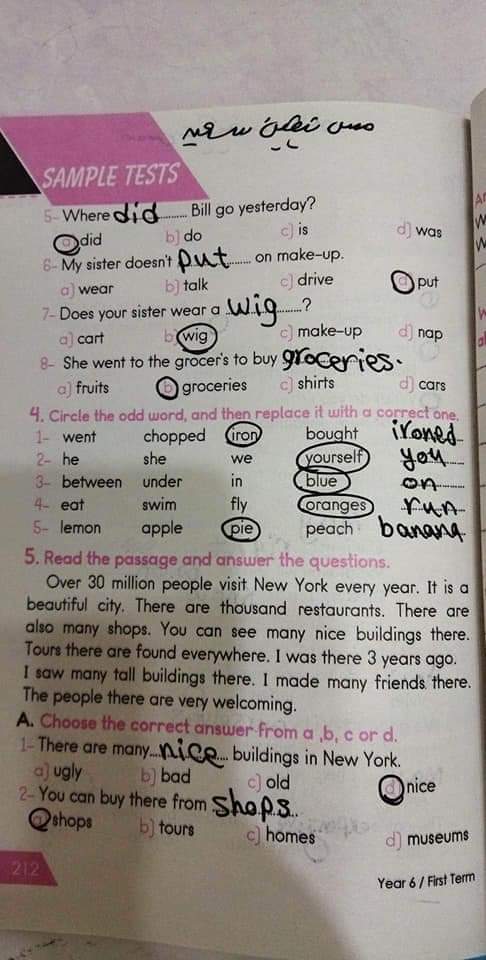 SAMPLE TESTS
5- Where did Bill go yesterday?
a) did b) do c) is d) was
6- My sister doesn't put on make-up.
a) wear b) talk c) drive d) put
7- Does your sister wear a wig?
a) cart b) wig c) make-up d) nap
8- She went to the grocer's to buy groceries.
a) fruits b) groceries c) shirts d) cars
4. Circle the odd word, and then replace it with a correct one.
1- went chopped iron bought ironed
2- he she we yourself you
3- between under in blue on
4- eat swim fly oranges run
5- lemon apple pie peach banana
5. Read the passage and answer the questions.
Over 30 million people visit New York every year. It is a
beautiful city. There are thousand restaurants. There are
also many shops. You can see many nice buildings there.
Tours there are found everywhere. I was there 3 years ago.
I saw many tall buildings there. I made many friends there.
The people there are very welcoming.
A. Choose the correct answer from a ,b, c or d.
1- There are many...nice... buildings in New York.
a) ugly b) bad c) old d) nice
2- You can buy there from shops..
a) shops b) tours c) homes d) museums
212
Year 6 / First Term